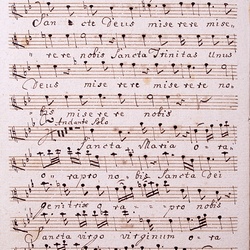 San cte Deus mise rere mise=
rere nobis Sancta Trinitas Unus
Deus miserere miserere no=
bis miserere nobis
Andante Solo
Sancta Maria o ra=
o= rapro no= bis Sancta Dei
genitrix o ra= = pro nobis
Sancta virgo virginum o ra